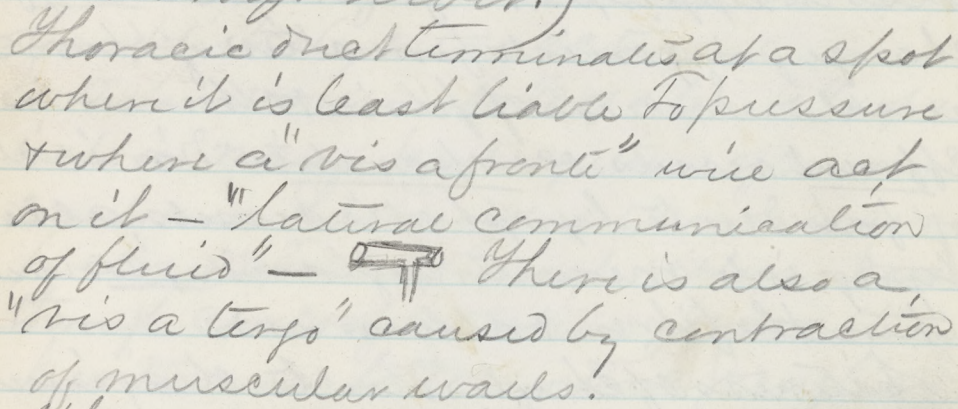 Thoracic duct terminates at a spot
where it is least liable to pressure
& where a "vis a fronte" will act
on it – "lateral communication
of fluid" – There is also a
"vis a tergo" caused by contraction
of muscular walls.